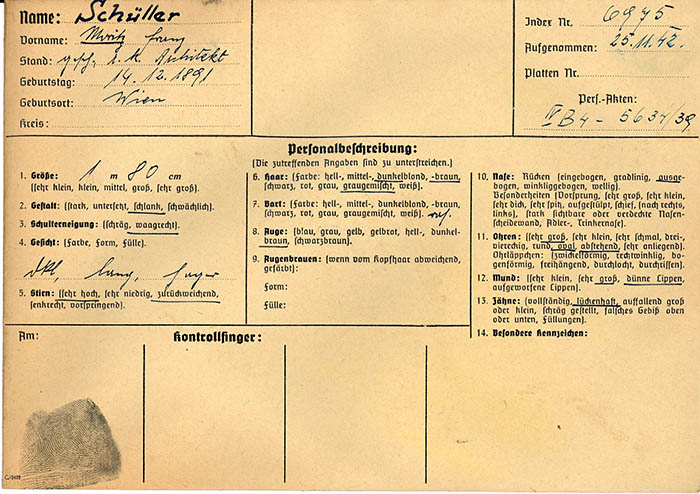 Name: Schüller
Vorname: Moritz Franz
Stand: gesch. r. k. Architekt
Geburtstag: 14.12.1891
Geburtsort: Wien
Kreis:
Index Nr. 6975
Aufgenommen: 25.11.42.
Platten Nr.
Pers.-Akten:
IV B4 - 5634/39
Personalbeschreibung:
(Die zutreffenden Angaben sind zu unterstreichen.)
1. Größe: 1 m 80 cm
(sehr klein, klein, mittel, groß, sehr groß).
2. Gestalt: (stark, untersetzt, schlank, schwächlich).
3. Schulterneigung: (schräg, waagrecht).
4. Gesicht: (Farbe, Form, Fülle).
dkl, lang, hager
5. Stirn: (sehr hoch, sehr niedrig, zurückweichend,
senkrecht, vorspringend).
6. Haar: (Farbe: hell-, mittel-, dunkelblond, -braun,
schwarz, rot, grau, graugemischt, weiß).
7. Bart: (Farbe: hell-, mittel-, dunkelblond, -braun,
schwarz, rot, grau, graugemischt, weiß).
8. Auge: (blau, grau, gelb, gelbrot, hell-, dunkel-
braun, schwarzbraun).
9. Augenbrauen: (wenn vom Kopfhaar abweichend,
gefärbt):
Form:
Fülle:
10. Nase: Rücken (eingebogen, gradlinig, ausge-
bogen, winkliggebogen, wellig).
Besonderheiten (Vorsprung, sehr groß, sehr klein,
sehr dick, sehr spitz, aufgestülpt, schief, (nach rechts,
links), stark sichtbare oder verdeckte Nasen-
scheidewand, Adler-, Trinkernase).
11. Ohren: (sehr groß, sehr klein, sehr schmal, drei-,
viereckig, rund, oval, abstehend, sehr anliegend).
Ohrläppchen: (zwickelförmig, rechtwinklig, bo-
genförmig, freihängend, durchlocht, durchrissen).
12. Mund: (sehr klein, sehr groß, dünne Lippen,
aufgeworfene Lippen).
13. Zähne: (vollständig, lückenhaft, auffallend groß
oder klein, schräg gestellt, falsches Gebiß oben
oder unten, Füllungen).
14. Besondere Kennzeichen:
Am:
Kontrollfinger: